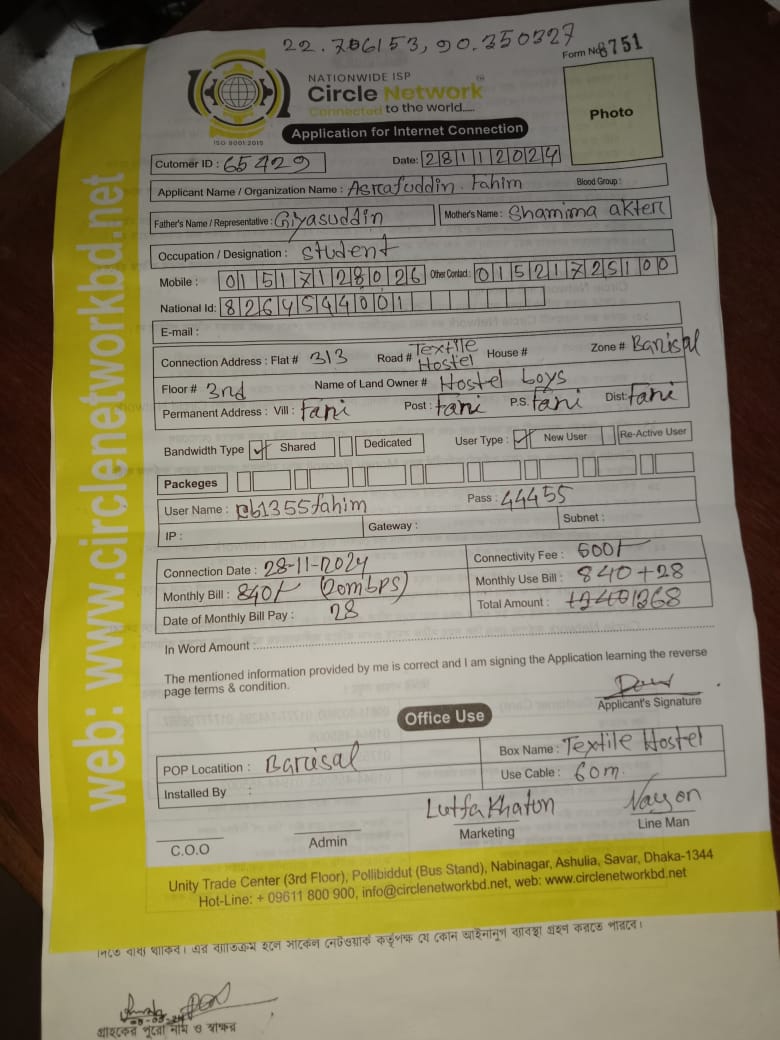 22.706153, 90.350327
Form No 8751
NATIONWIDE ISP
Circle Network
Connected to the world.....
ISO 9001:2015
Photo
Application for Internet Connection
Cutomer ID : 65429 Date: 28112024
Applicant Name / Organization Name : Asrafuddin Fahim Blood Group :
Father's Name / Representative : Giyasuddin Mother's Name : Shamima akter
Occupation / Designation : Student
Mobile : 01517128026 Other Contact : 01521725100
National Id: 8264544001
E-mail :
Connection Address : Flat # 313 Road # Textile Hostel House # Zone # Barisal
Floor # 3rd Name of Land Owner # Hostel boys
Permanent Address : Vill : Fani Post : Fani P.S. Fani Dist: Fani
Bandwidth Type ✓ Shared Dedicated User Type : ✓ New User Re-Active User
Packeges
User Name : cb1355fahim Pass : 44455
IP : Gateway : Subnet :
Connection Date : 28-11-2024 Connectivity Fee : 600/-
Monthly Bill : 840/- (20mbps) Monthly Use Bill : 840+28
Date of Monthly Bill Pay : 28 Total Amount :
In Word Amount :
The mentioned information provided by me is correct and I am signing the Application learning the reverse
page terms & condition.
Applicant's Signature
Office Use
POP Locatition : Barisal Box Name : Textile Hostel
Installed By : Use Cable : 60m.
Lutfa Khaton Nayon
C.O.O Admin Marketing Line Man
Unity Trade Center (3rd Floor), Pollibiddut (Bus Stand), Nabinagar, Ashulia, Savar, Dhaka-1344
Hot-Line: + 09611 800 900, info@circlenetworkbd.net, web: www.circlenetworkbd.net
web: www.circlenetworkbd.net
দিতে বাধ্য থাকিব। এর ব্যতিক্রম হলে সার্কেল নেটওয়ার্ক কর্তৃপক্ষ যে কোন আইনানুগ ব্যবস্থা গ্রহণ করতে পারবে।
গ্রাহকের পুরো নাম ও স্বাক্ষর